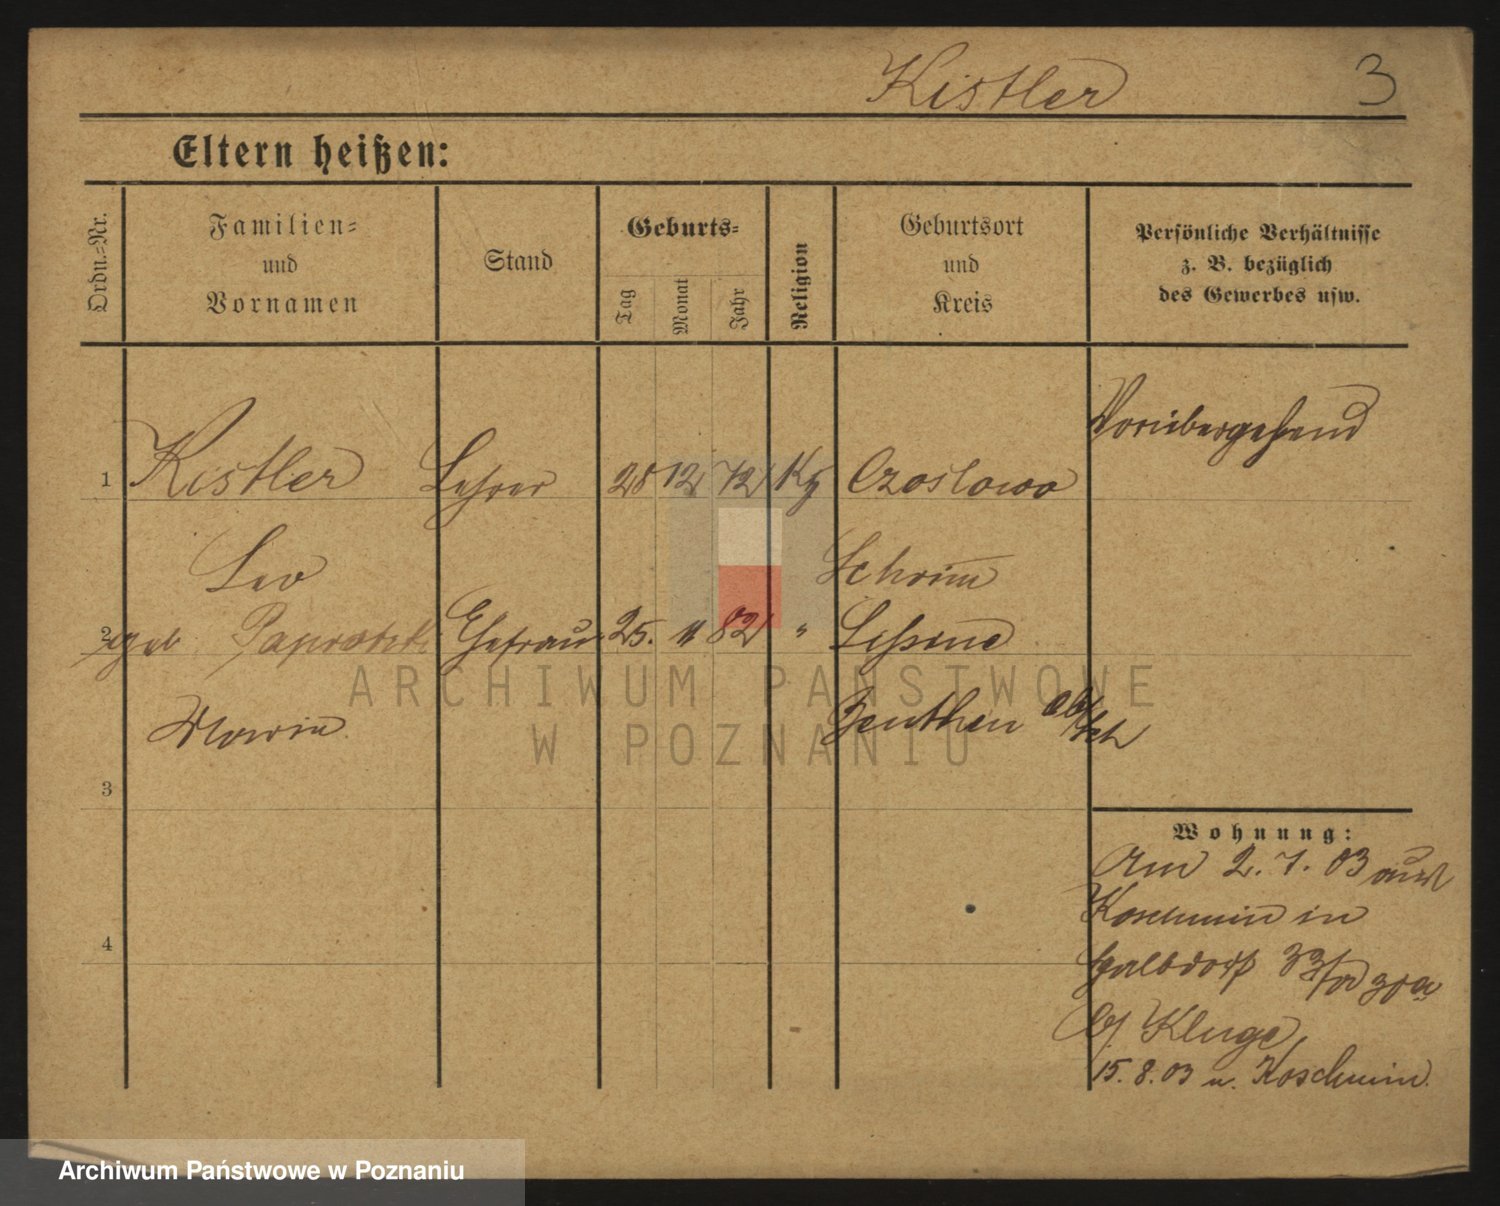 Kistler 3
Eltern heißen:
Ordn.-Nr.
Familien-
und
Vornamen
Stand
Geburts-
Tag
Monat
Jahr
Religion
Geburtsort
und
Kreis
Persönliche Verhältnisse
z. B. bezüglich
des Gewerbes usw.
Vorübergehend
1 Kistler Lehrer 28 12 72 Kg Czoslowo
Leo Schrimm
2 geb Paprotzki Ehefrau 25. " 82 "
Marie Beuthen Ob/Sch
3
Wohnung:
Am 2. 7. 03 aus
Koschmin in
4
33
b/ Kluge
15. 8. 03 n. Koschmin
ARCHIWUM PAŃSTWOWE
W POZNANIU
Archiwum Państwowe w Poznaniu